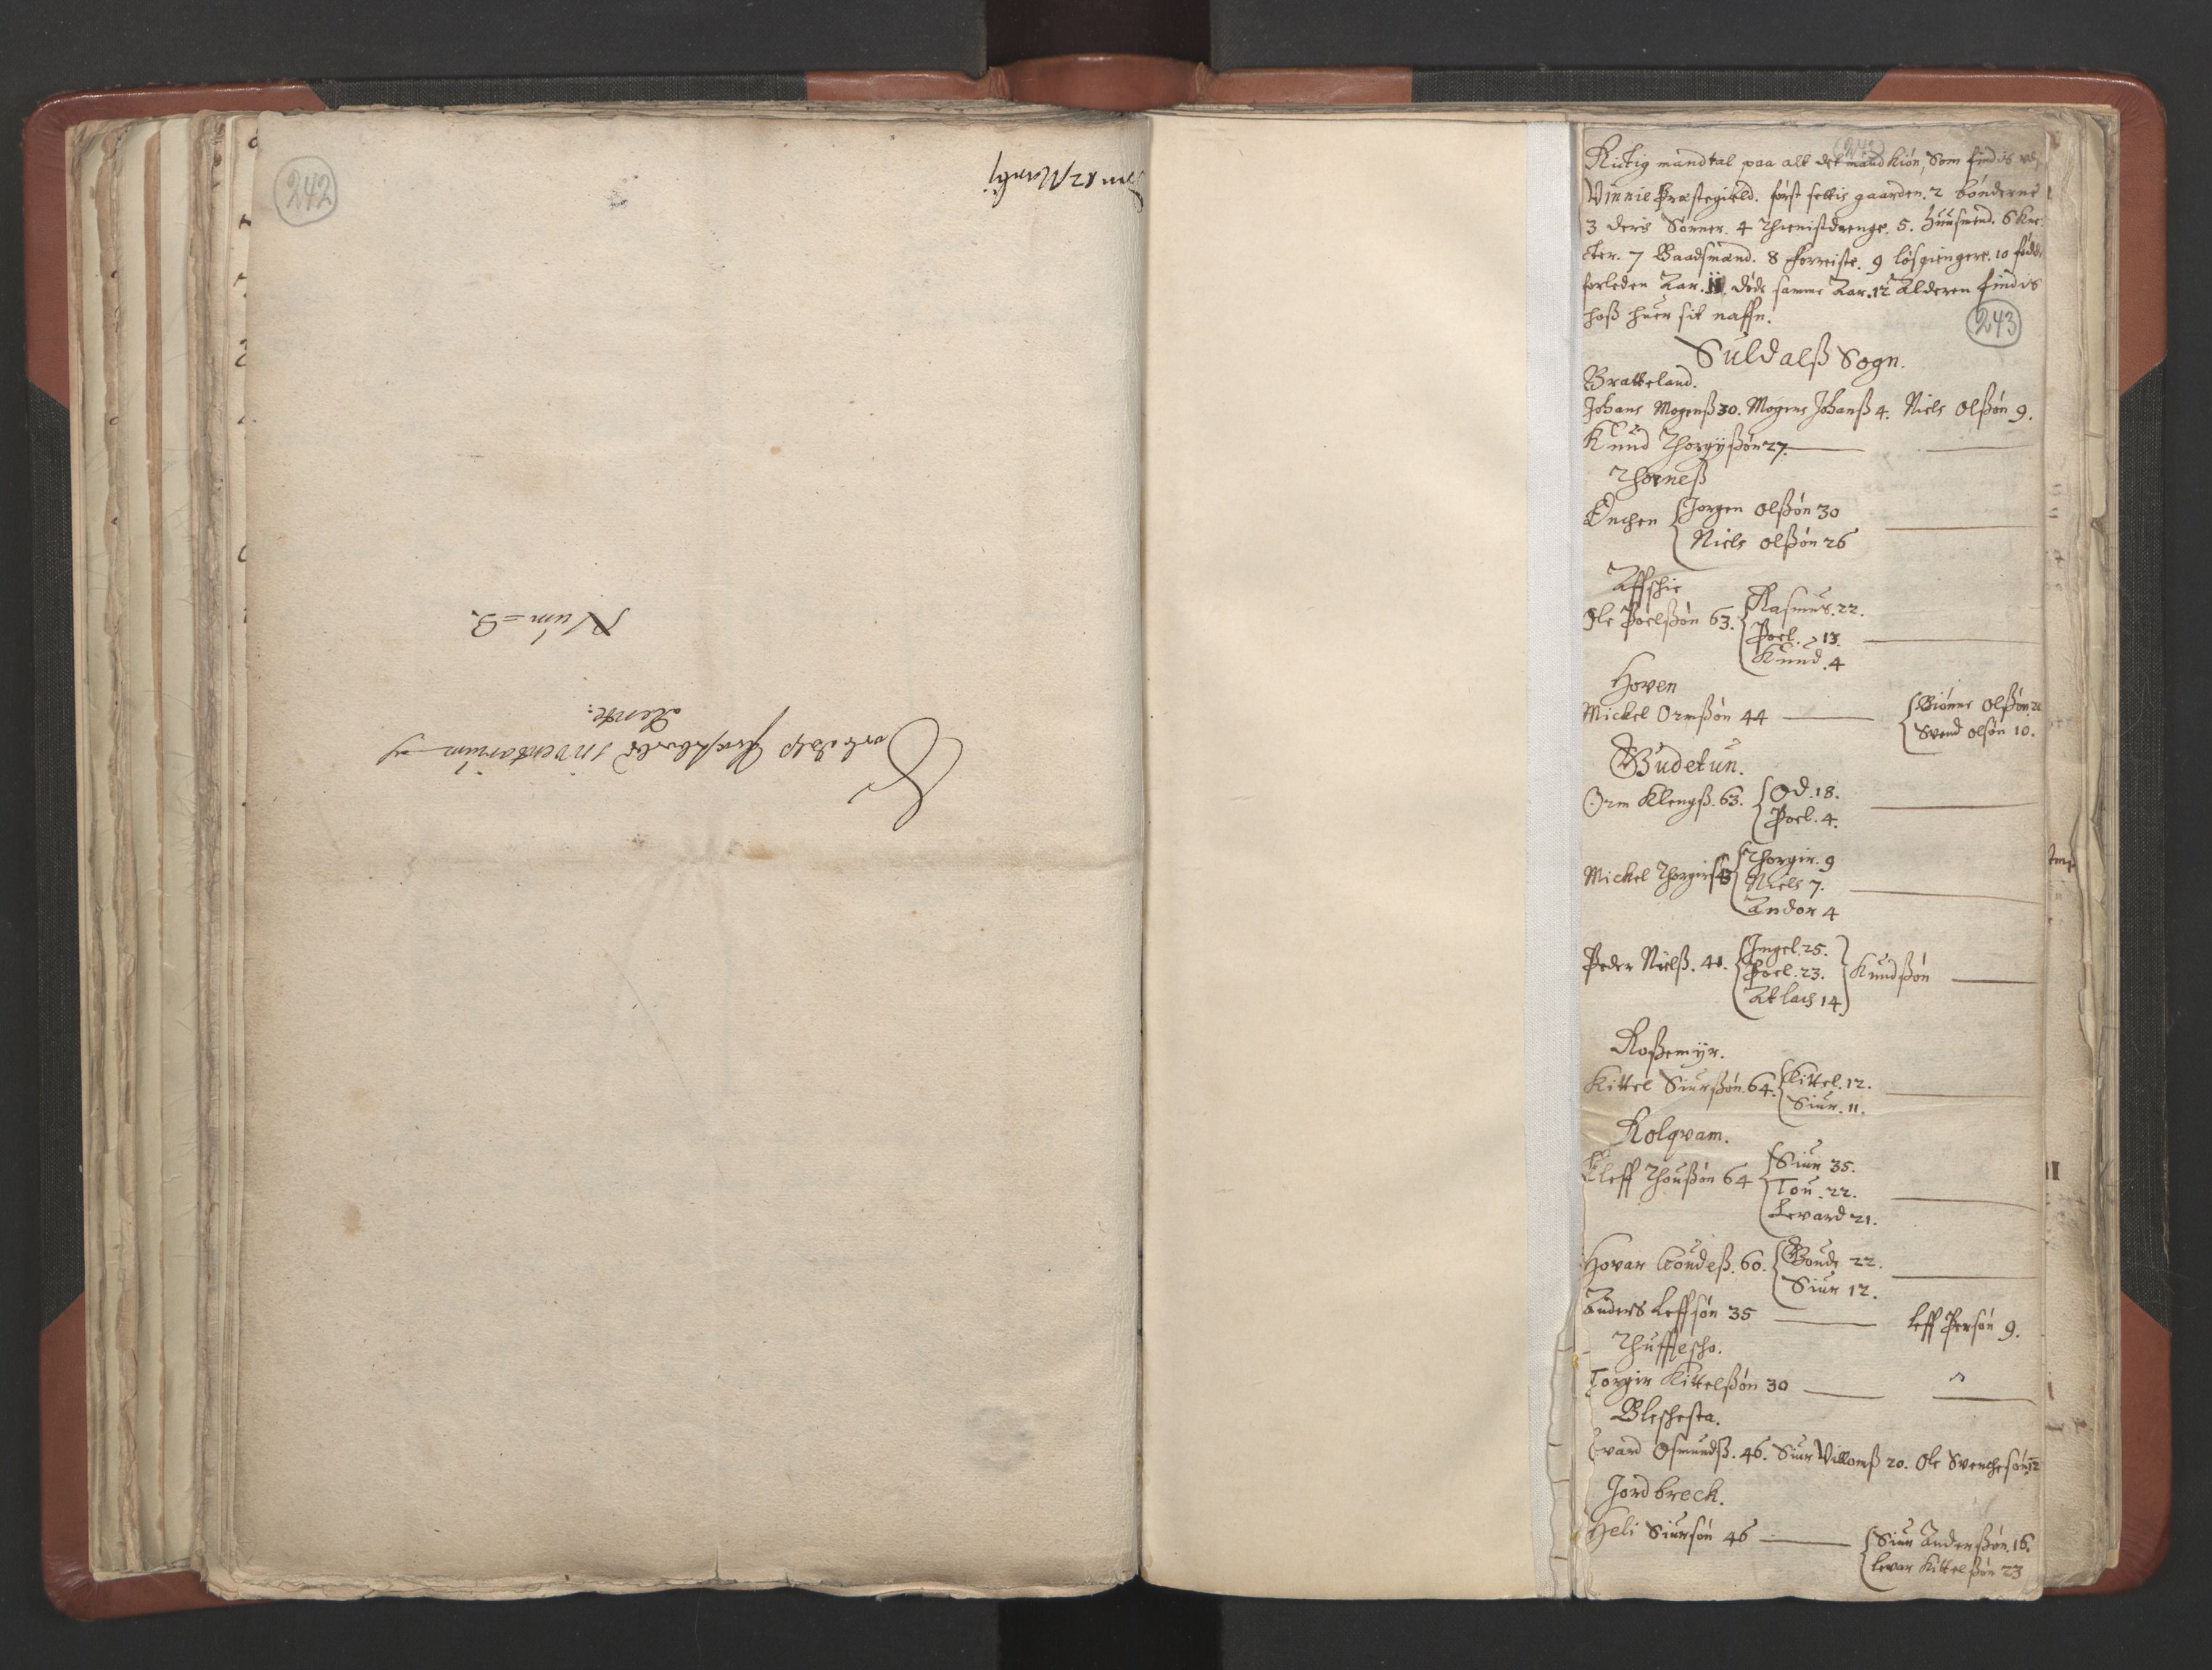 242
Num = 3.
inventarium
243
Rictig mandtal paa alt det mand kiön, Som findis udj
Vinnie Præstegield. först settis gaarden. 2 bönderne
3 deris Sönner. 4 Thienistdrenge. 5. Huusmend. 6 Kne-
cter. 7 Baadsmænd. 8 forreiste. 9 lösgiengere. 10 födde
forleden Aar. 11. döde samme Aar. 12 Alderen findis
hoß huer sit naffn.
Suldalß Sogn.
Bratteland.
Johans Mogenß 30. Mogens Johanß 4. Niels Olßön 9.
Knud Thorgyßön 27.
Thorneß
Enchen Jorgen Olßön 30
Niels Olßön 26
Affschie
Ole Poelßön 63. Rasmus. 22.
Poel. 13.
Knud. 4
Hoven
Mickel Ormßön 44 Biörne Olßön
Svend Olsön 10.
Gudetun.
Orm Klengß. 63. Od. 18.
Poel. 4.
Mickel Thorgirß Thorgir. 9
Niels 7.
Andor 4
Peder Nielß. 41. Ingel. 25.
Poel. 23. Knudßön
Atlach 14
Roßemyr.
Kittel Siurßön. 64. Kittel. 12.
Siur. 11.
Kolqvam.
Eleff Thoußön 64 Siur 35.
Tou. 22.
Levard 21.
Hovar Goudeß. 60. Goude 22.
Siur 12.
Anders Leffsön 35 Leff Persön 9.
Thuffescho.
Torgir Kittelßön 30
Bleschesta.
Evard Osmundß. 46. Siur Villomß 20. Ole Svenchesön 12
Jordbreck.
Heli Siursön 46 Siur Anderßön. 16.
Levar Kittelßön 23